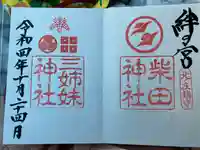 絆の宮
柴田
神社
三姉妹
神社
令和四年十月二十四日